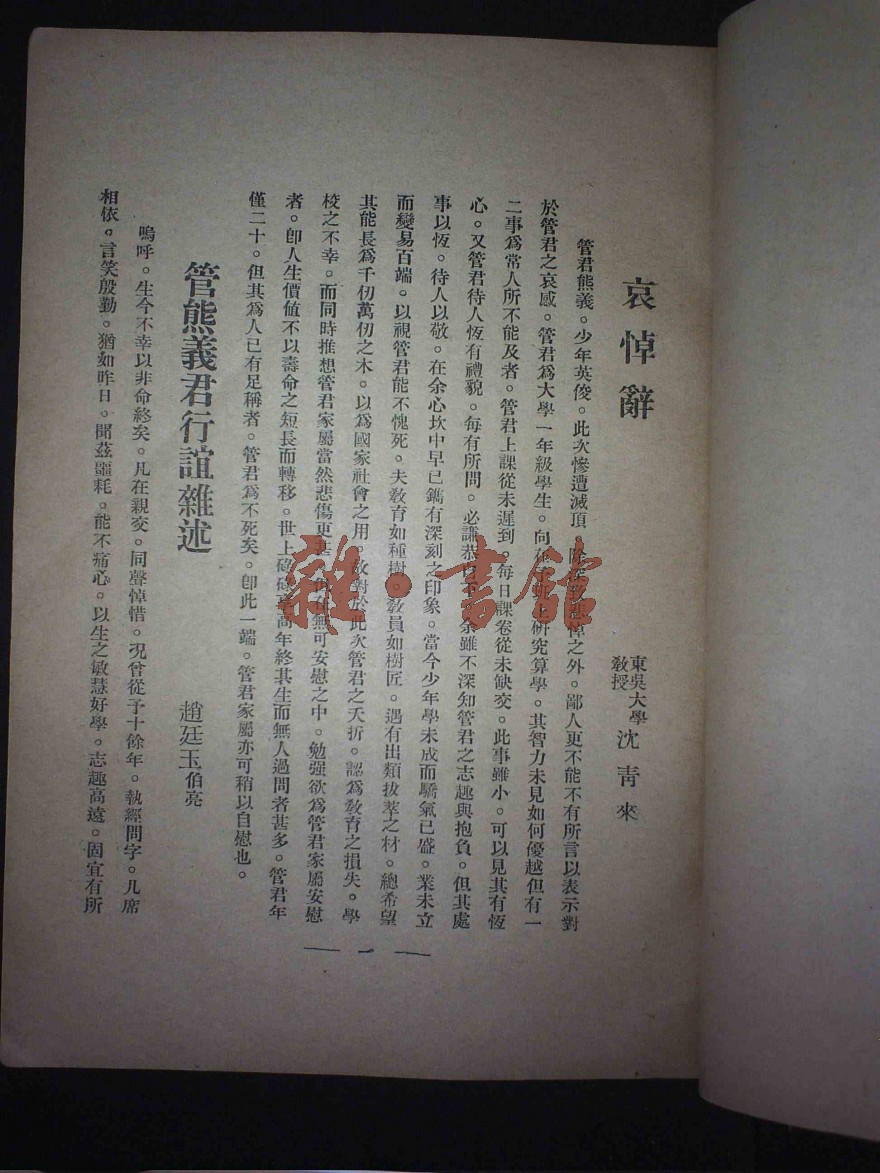 哀悼辭
東吳大學
教授
沈青來
管君熊義。少年英俊。此次慘遭滅頂。除深致悲悼之外。鄙人更不能不有所言以表示對
於管君之哀感。管君爲大學一年級學生。向在予班上研究算學。其智力未見如何優越但有一
二事爲常人所不能及者。管君上課從未遲到。每日課卷從未缺交。此事雖小。可以見其有恆
心。又管君待人恆有禮貌。每有所問。必謙恭 余雖不深知管君之志趣與抱負。但其處
事以恆。待人以敬。在余心坎中早已鐫有深刻之印象。當今少年學未成而驕氣已盛。業未立
而變易百端。以視管君能不愧死。夫教育如種樹。教員如樹匠。遇有出類拔萃之材。總希望
其能長爲千仞萬仞之木。以爲國家社會之用。故對於此次管君之夭折。認爲敎育之損失。學
校之不幸。而同時推想管君家屬當然悲傷更甚 但在無可安慰之中。勉强欲爲管君家屬安慰
者。卽人生價値不以壽命之短長而轉移。世上碌碌享高年終其生而無人過問者甚多。管君年
僅二十。但其爲人已有足稱者。管君爲不死矣。卽此一端。管君家屬亦可稍以自慰也。
管熊義君行誼雜述
趙廷玉伯亮
嗚呼。生今不幸以非命終矣。凡在親交。同聲悼惜。况曾從予十餘年。執經問字。几席
相依。言笑殷勤。猶如昨日。聞茲噩耗。能不痛心。以生之敏慧好學。志趣高遠。固宜有所
一
雜·書館